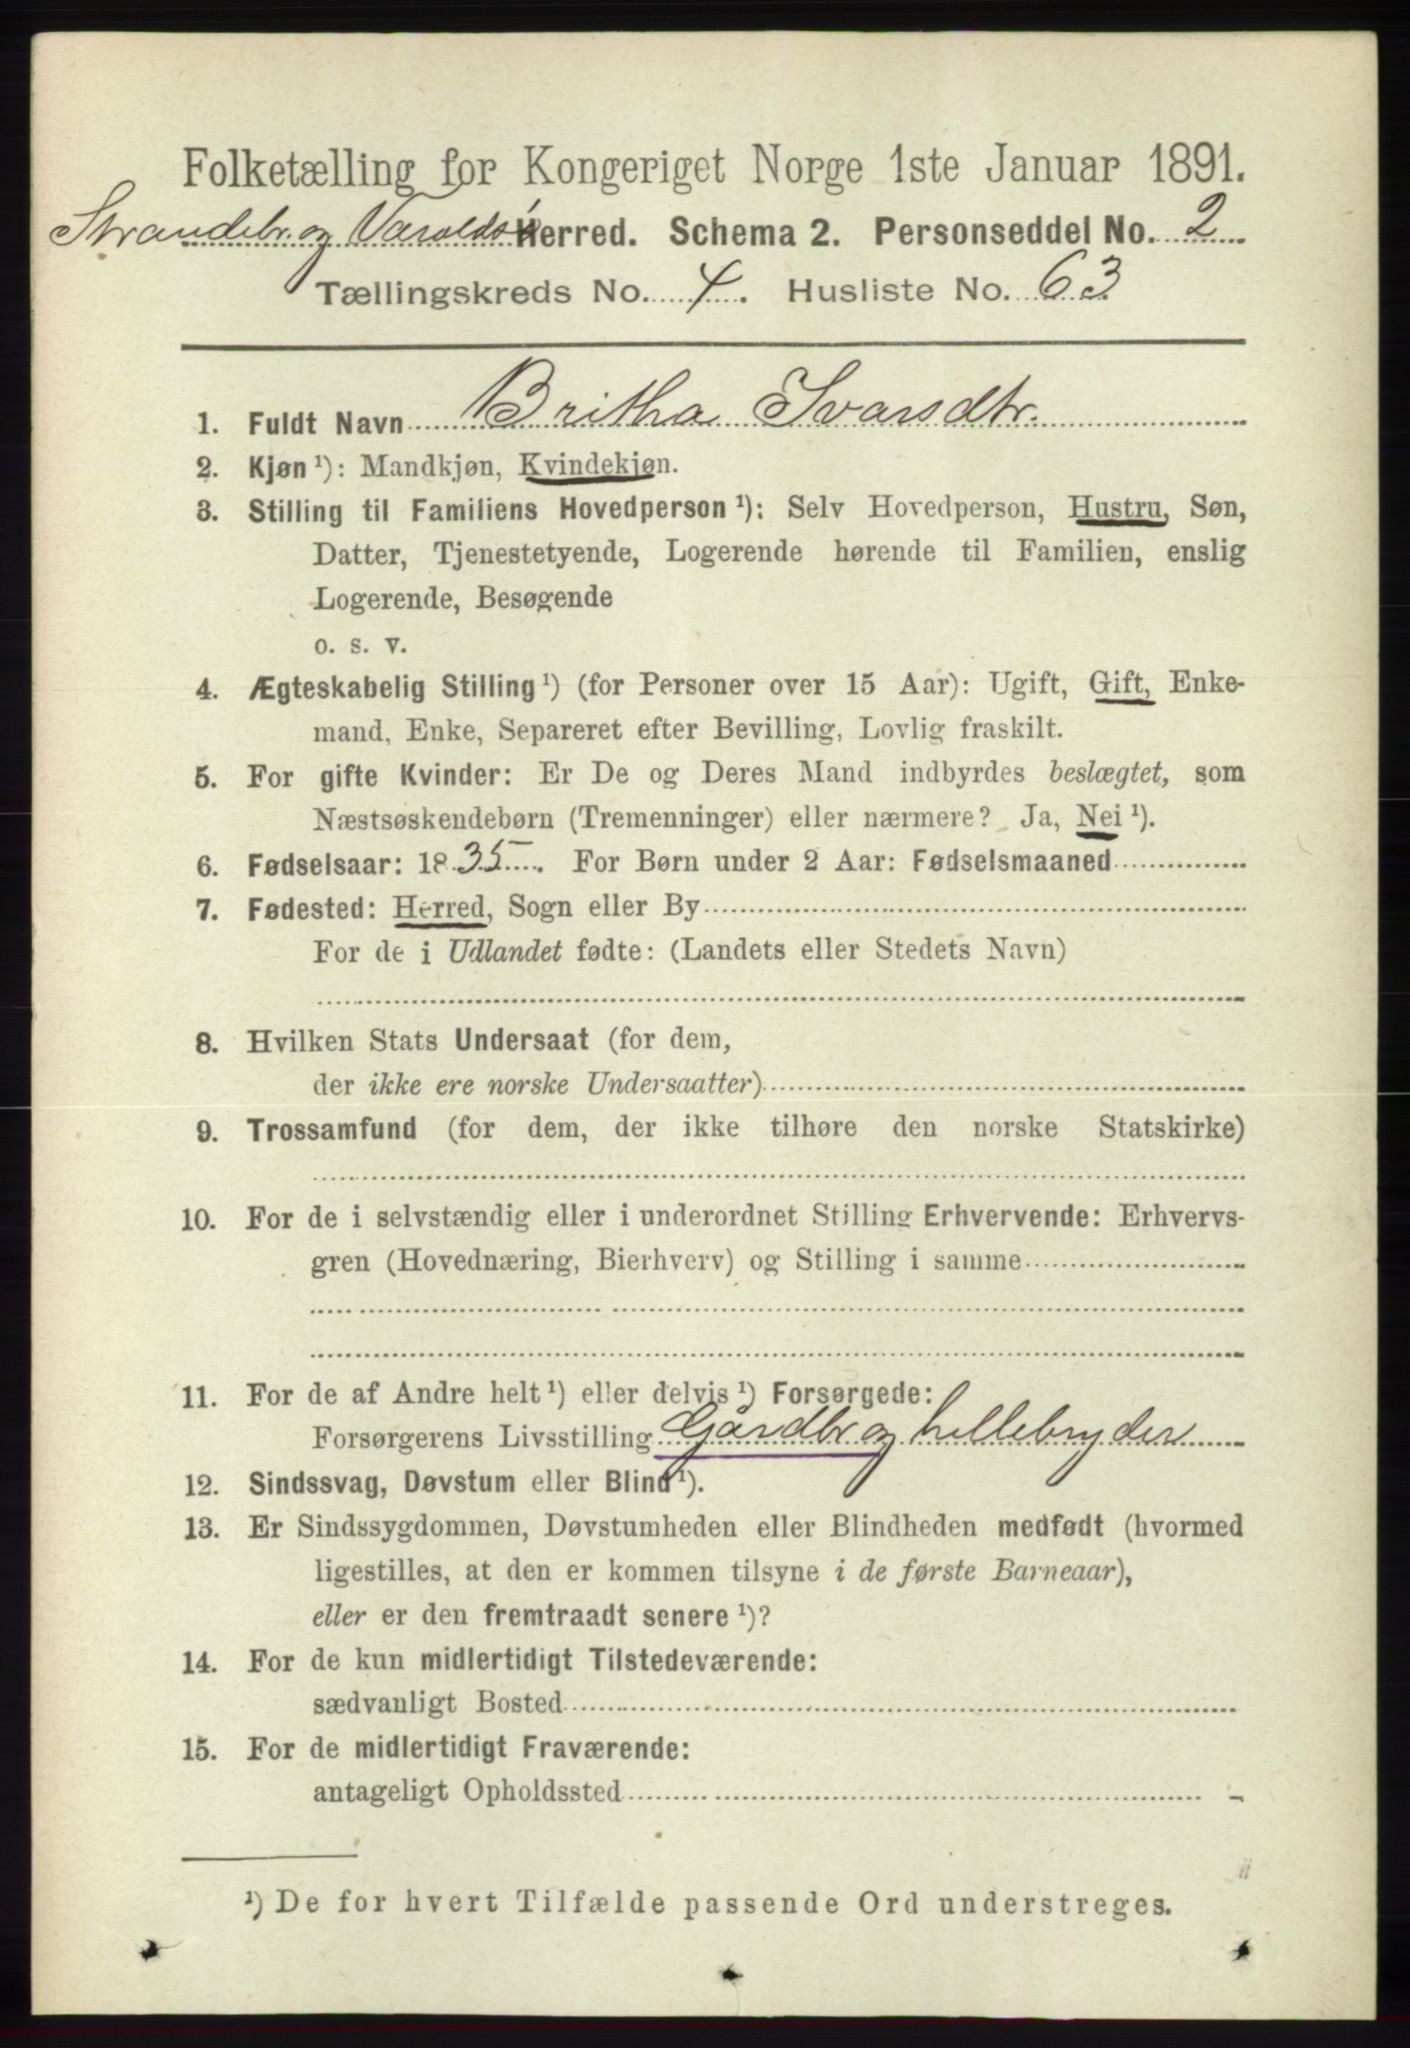 Folketælling for Kongeriget Norge 1ste Januar 1891.
Strandebr. og Varaldsø Herred. Schema 2. Personseddel No. 2
Tællingskreds No. 4. Husliste No. 63
1. Fuldt Navn Britha Ivarsdtr.
2. Kjøn ¹): Mandkjøn, Kvindekjøn.
3. Stilling til Familiens Hovedperson ¹): Selv Hovedperson, Hustru, Søn,
Datter, Tjenestetyende, Logerende hørende til Familien, enslig
Logerende, Besøgende
o. s. v.
4. Ægteskabelig Stilling ¹) (for Personer over 15 Aar): Ugift, Gift, Enke-
mand, Enke, Separeret efter Bevilling, Lovlig fraskilt.
5. For gifte Kvinder: Er De og Deres Mand indbyrdes beslægtet, som
Næstsøskendebørn (Tremenninger) eller nærmere? Ja, Nei ¹).
6. Fødselsaar: 1835. For Børn under 2 Aar: Fødselsmaaned
7. Fødested: Herred, Sogn eller By
For de i Udlandet fødte: (Landets eller Stedets Navn)
8. Hvilken Stats Undersaat (for dem,
der ikke ere norske Undersaatter)
9. Trossamfund (for dem, der ikke tilhøre den norske Statskirke)
10. For de i selvstændig eller i underordnet Stilling Erhvervende: Erhvervs-
gren (Hovednæring, Bierhverv) og Stilling i samme
11. For de af Andre helt ¹) eller delvis ¹) Forsørgede:
Forsørgerens Livsstilling Gårdbr og hellebryder
12. Sindssvag, Døvstum eller Blind ¹).
13. Er Sindssygdommen, Døvstumheden eller Blindheden medfødt (hvormed
ligestilles, at den er kommen tilsyne i de første Barneaar),
eller er den fremtraadt senere ¹)?
14. For de kun midlertidigt Tilstedeværende:
sædvanligt Bosted
15. For de midlertidigt Fraværende:
antageligt Opholdssted
¹) De for hvert Tilfælde passende Ord understreges.